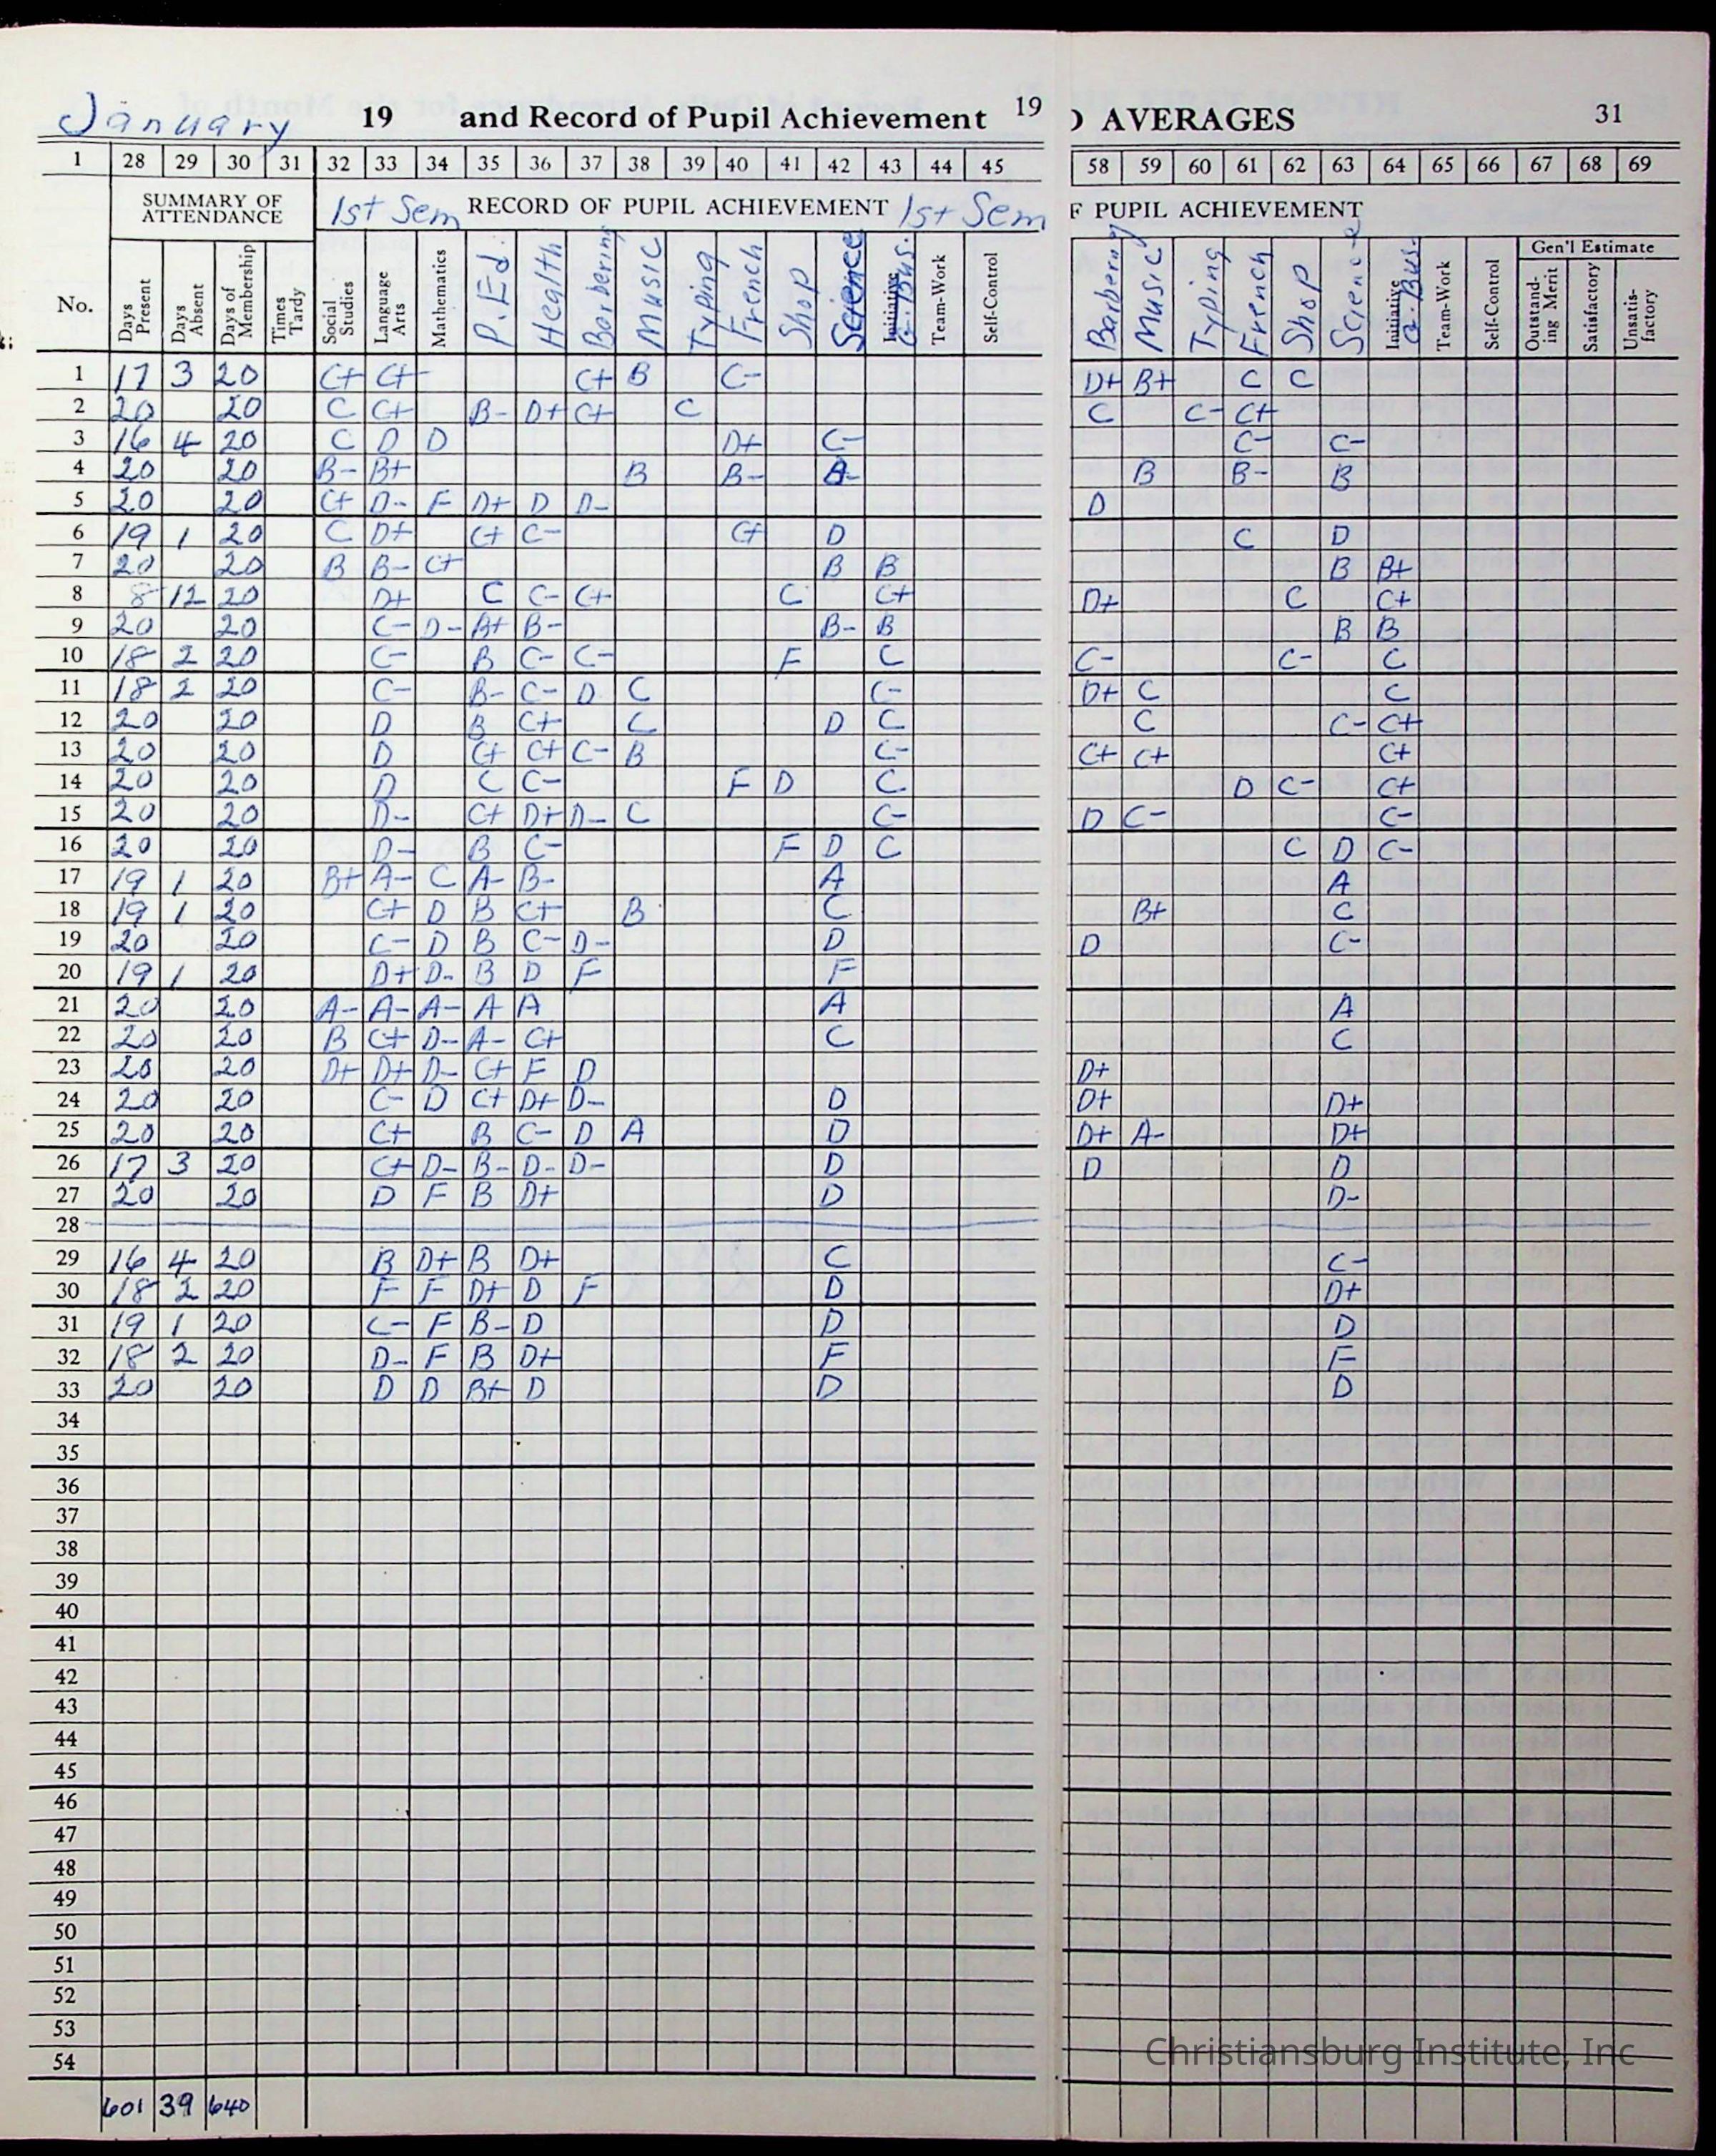 January 19 and Record of Pupil Achievement 19 AVERAGES 31
1 28 29 30 31 32 33 34 35 36 37 38 39 40 41 42 43 44 45 58 59 60 61 62 63 64 65 66 67 68 69
SUMMARY OF ATTENDANCE 1st Sem RECORD OF PUPIL ACHIEVEMENT 1st Sem F PUPIL ACHIEVEMENT
Gen'l Estimate
No. Days Present Days Absent Days of Membership Times Tardy Social Studies Language Arts Mathematics P. Ed. Health Barbering Music Typing French Shop Science Initiative G. Bus. Team-Work Self-Control Barbery Music Typing French Shop Science Initiative G. Bus. Team-Work Self-Control Outstand-ing Merit Satisfactory Unsatis-factory
1 17 3 20 C+ C+ C+ B C- D+ B+ C C
2 20 20 C C+ B- D+ C+ C C C- C+
3 16 4 20 C D D D+ C- C- C-
4 20 20 B- B+ B B- B B- B
5 20 20 C+ D- F D+ D D- D
6 19 1 20 C D+ C+ C- C+ D C D
7 20 20 B B- C+ B B B B+
8 8 12 20 D+ C C- C+ C C+ D+ C C+
9 20 20 C- D- B+ B- B- B B B
10 18 2 20 C- B C- C- F C C- C- C
11 18 2 20 C- B- C- D C C- D+ C C
12 20 20 D B C+ C D C C C- C+
13 20 20 D C+ C+ C- B C- C+ C+ C+
14 20 20 D C C- F D C D C- C+
15 20 20 D- C+ D+ D- C C- D C- C-
16 20 20 D- B C- F D C C D C-
17 19 1 20 B+ A- C A- B- A A
18 19 1 20 C+ D B C+ B C B+ C
19 20 20 C- D B C- D- D D C-
20 19 1 20 D+ D- B D F F
21 20 20 A- A- A- A A A A
22 20 20 B C+ D- A- C+ C C
23 20 20 D+ D+ D- C+ F D D+
24 20 20 C- D C+ D+ D- D D+ D+
25 20 20 C+ B C- D A D D+ A- D+
26 17 3 20 C+ D- B- D- D- D D D
27 20 20 D F B D+ D D-
28
29 16 4 20 B D+ B D+ C C-
30 18 2 20 F F D+ D F D D+
31 19 1 20 C- F B- D D D
32 18 2 20 D- F B D+ F F
33 20 20 D D B+ D D D
34
35
36
37
38
39
40
41
42
43
44
45
46
47
48
49
50
51
52
53
54
601 39 640
Christiansburg Institute, Inc